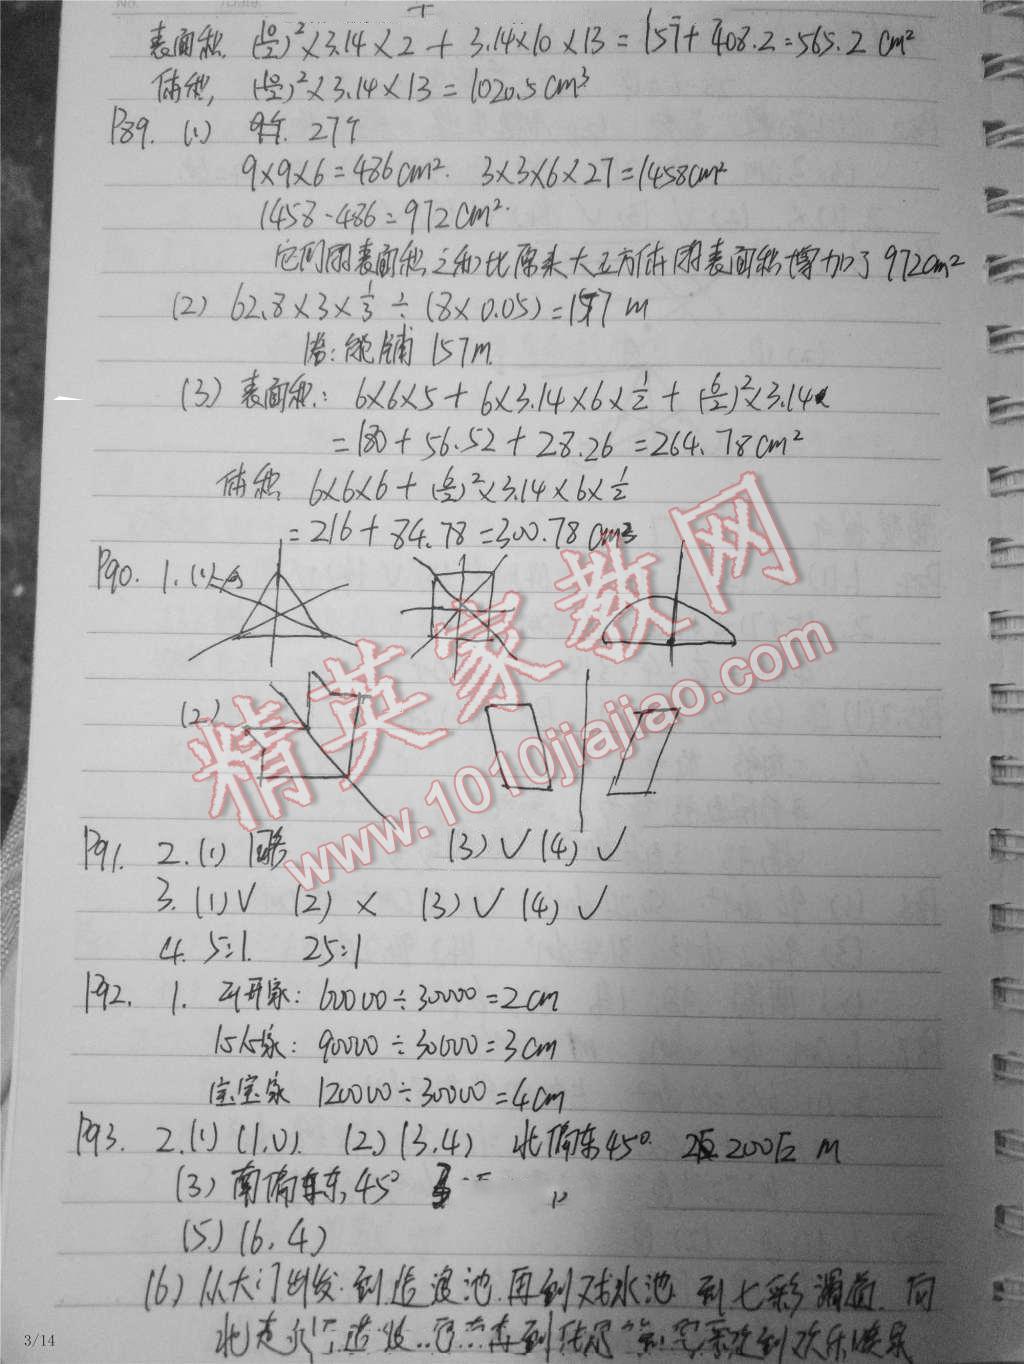 表面积 (10/2)²×3.14×2 + 3.14×10×13 = 157+408.2=565.2 cm²
体积, (10/2)²×3.14×13=1020.5cm³
P89. (1) 答. 27个
9×9×6=486cm². 3×3×6×27=1458cm²
1458-486=972cm².
它们的表面积之和比原来大正方体的表面积增加了972cm²
(2) 62.8×3×1/3÷(8×0.05)=157 m
答:能铺 157m.
(3) 表面积: 6×6×5+6×3.14×6×1/2+(6/2)²×3.14
=180+56.52+28.26=264.78cm²
体积 6×6×6+(6/2)²×3.14×6×1/2
=216+84.78=300.78cm³
P90. 1.(1)
(2)
精英家教网
www.1010jiajiao.com
P91. 2.(1) 1 (3)√ (4)√
3.(1)√ (2)× (3)√ (4)√
4. 5:1. 25:1
P92. 1. 家: 60000÷30000=2cm
家: 90000÷30000=3cm
宝宝家 120000÷30000=4cm
P93. 2.(1)(1,0). (2)(3,4) 北偏东45°. 200 m
(3) 南偏东45°
(5)(6,4)
(6)从大门出发.到造浪池.再到戏水池 到七彩滑道.向
北走 再到
3/14